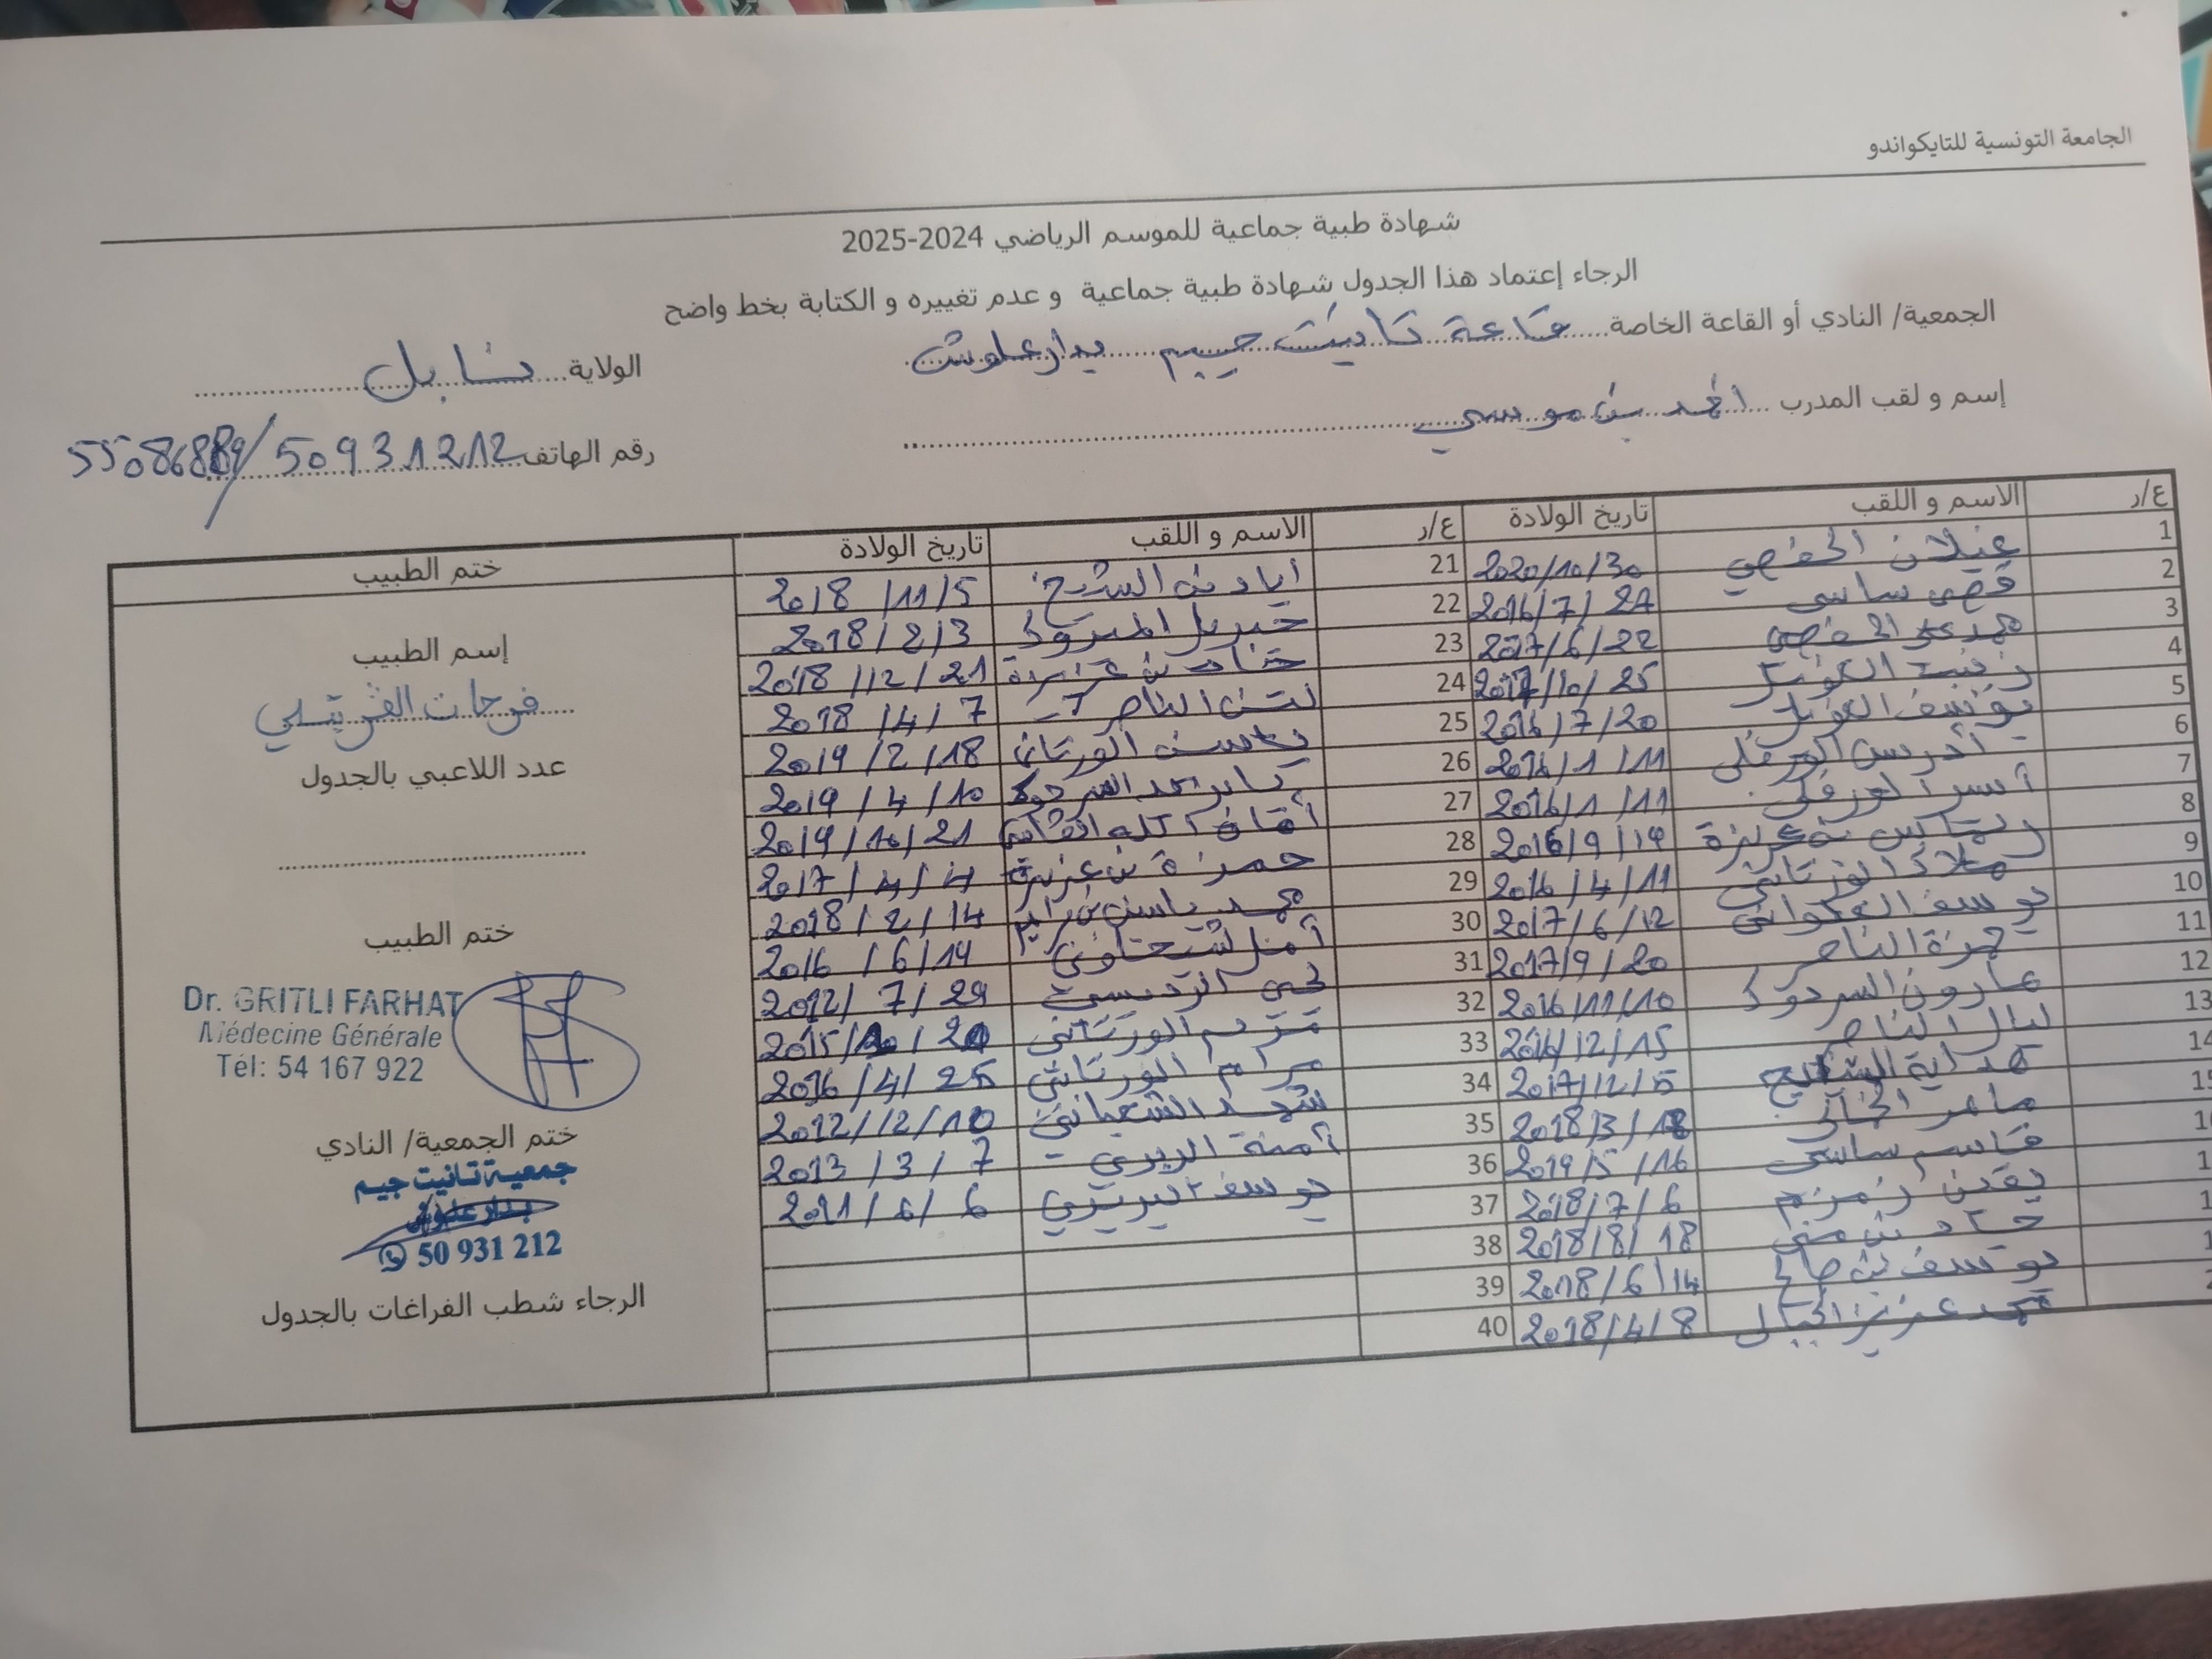 الجامعة التونسية للتايكواندو
شهادة طبية جماعية للموسم الرياضي 2024-2025
الرجاء إعتماد هذا الجدول شهادة طبية جماعية و عدم تغييره و الكتابة بخط واضح
الجمعية/ النادي أو القاعة الخاصة..... قاعة تانيت جيم بدار علوش
الولاية..... نابل
إسم و لقب المدرب ..... احمد بن موسى
رقم الهاتف..... 50931212/
ع/ر الاسم و اللقب تاريخ الولادة ع/ر الاسم و اللقب تاريخ الولادة ختم الطبيب
1 غيلان الحفصي 2020/10/30 21 أياد بن الشيخ 2018/11/5
2 قصي ساسي 2016/7/27 22 جبريل 2018/2/3
3 محمد الحفصي 2017/6/22 23 بن عزيزة 2018/12/21
4 زينب العويل 2017/10/25 24 الناصر 2018/4/7
5 يوسف العويل 2016/7/20 25 ياسين الورتاني 2019/2/18
6 أدريس الورفلي 2016/1/11 26 2019/4/10
7 آسر الورفلي 2016/1/11 27 2019/10/21
8 بن عزيزة 2016/9/19 28 حمزة بن عزيزة 2017/4/4
9 ملاك الورتاني 2016/4/11 29 محمد ياسين بن 2018/2/14
10 يوسف 2017/6/12 30 أمل 2016/6/19
11 حمزة الناصر 2017/9/20 31 2012/7/29
12 هارون 2016/11/10 32 مريم الورتاني
13 ليال الناصر 2016/12/15 33 مرام الورتاني 2016/4/25
14 هداية الشيخ 2017/12/5 34 شهد الشعباني 2012/12/10
15 ماهر 2018/3/18 35 آمنة 2013/3/7
قاسم ساسي 2019/5/16 36 يوسف 2021/6/6
يقين زمزم 2018/7/6 37
بن 2018/8/18 38
يوسف بن صالح 2018/6/14 39
محمد عزيز 2018/4/8 40
إسم الطبيب
فرحات القريتلي
عدد اللاعبي بالجدول
ختم الطبيب
Dr. GRITLI FARHAT
Médecine Générale
Tél: 54 167 922
ختم الجمعية/ النادي
جمعية تانيت جيم
بدار علوش
50 931 212
الرجاء شطب الفراغات بالجدول